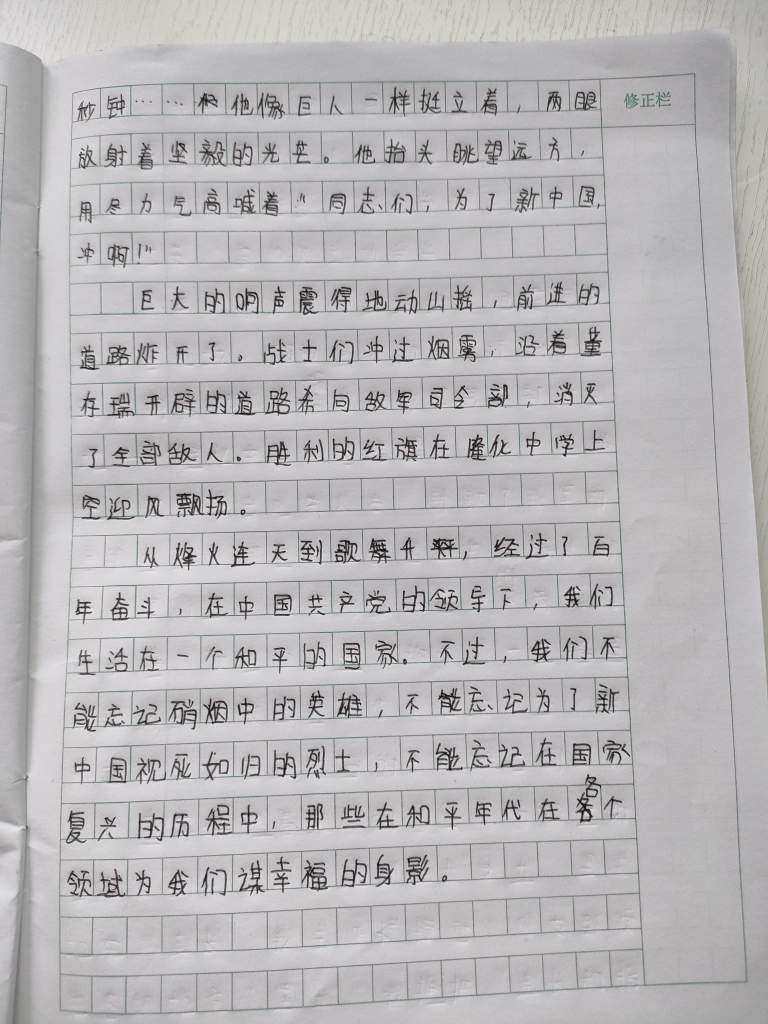 秒钟……他像巨人一样挺立着，两眼
修正栏
放射着坚毅的光芒。他抬头眺望远方，
用尽力气高喊着“同志们，为了新中国，
冲啊！”
巨大的响声震得地动山摇，前进的
道路炸开了。战士们冲过烟雾，沿着董
存瑞开辟的道路杀向敌军司令部，消灭
了全部敌人。胜利的红旗在隆化中学上
空迎风飘扬。
从烽火连天到歌舞升平，经过了百
年奋斗，在中国共产党的领导下，我们
生活在一个和平的国家。不过，我们不
能忘记硝烟中的英雄，不能忘记为了新
中国视死如归的烈士，不能忘记在国家
复兴的历程中，那些在和平年代在各个
领域为我们谋幸福的身影。